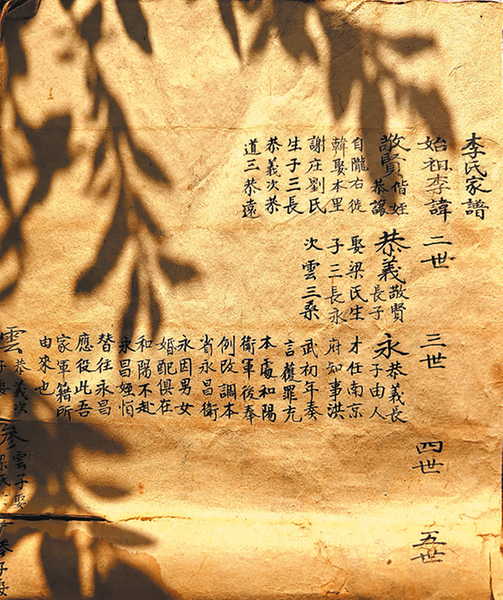 李氏家譜
始祖李諱
敬賢
偕姪
恭謙
自隴右徙
韓娶本里
謝庄劉氏
生子三長
恭義次恭
道三恭遠
二世
恭義
敬賢
長子
娶梁氏生
子三長永
次雲三桑
三世
永
恭義長
子由人
才任南京
府知事洪
武初年奏
言獲罪充
本處和陽
衛軍後奉
例改調本
省永昌衛
永因男女
婚配俱在
和陽不赴
永昌姪怕
替往永昌
應役此吾
家軍籍所
由來也
雲
恭義次
四世
參
雲子娶
梁氏
五世